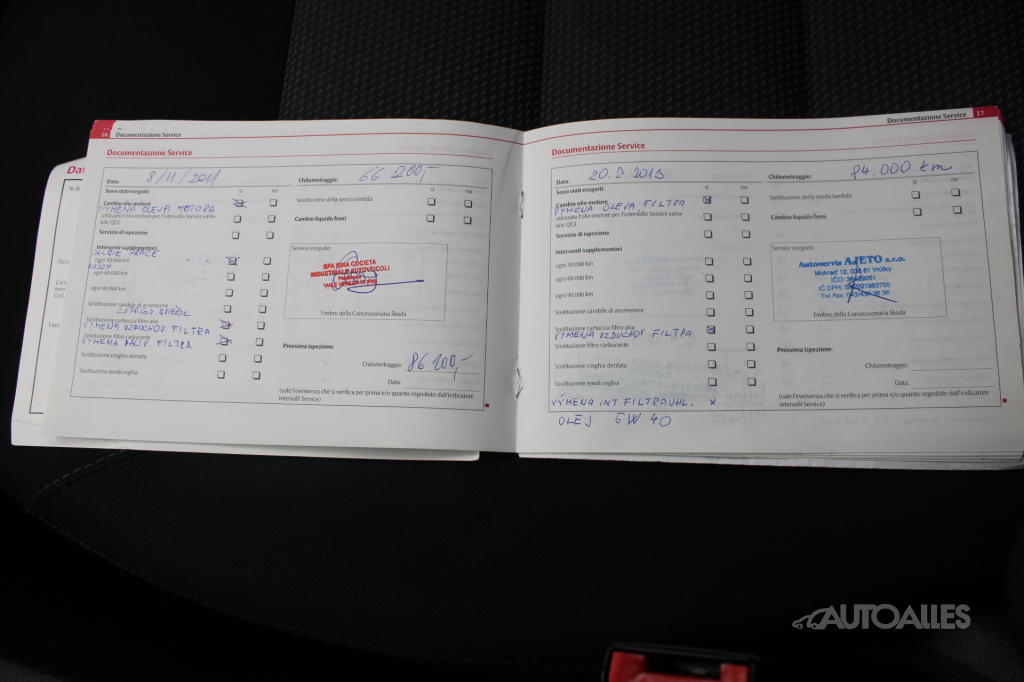 16 Documentazione Service
Documentazione Service
Data: 8/11/2011
Chilometraggio: 66 200,-
Sono stati eseguiti:
sì no
sì no
Cambio olio motore
VÝMENA OLEJA MOTORA
utilizzato l'olio motore per l'intervallo Service varia-
bile QG1
Servizio di ispezione
Sostituzione della sonda lambda
Cambio liquido freni
Interventi supplementari
ogni 30 000 km
ogni 60 000 km
ogni 90 000 km
Sostituzione candele di accensione
Sostituzione cartuccia filtro aria
VÝMENA VZDUCHOV FILTRA
Sostituzione filtro carburante
VÝMENA PALIV. FILTRA
Sostituzione cinghia dentata
Sostituzione tendicinghia
Service eseguito:
SPA SINA SOCIETA
INDUSTRIALE AUTOVEICOLI
Timbro della Concessionaria Škoda
Prossima ispezione:
Chilometraggio: 86 200,-
Data:
(vale l'evenienza che si verifica per prima e/o quanto segnalato dall'indicatore
intervalli Service)
Documentazione Service 17
Documentazione Service
Data: 20.2.2013
Chilometraggio: 84.000 km
Sono stati eseguiti:
sì no
sì no
Cambio olio motore
VÝMENA OLEVA FILTRA
utilizzato l'olio motore per l'intervallo Service varia-
bile QG1
Servizio di ispezione
Sostituzione della sonda lambda
Cambio liquido freni
Interventi supplementari
ogni 30 000 km
ogni 60 000 km
ogni 90 000 km
Sostituzione candele di accensione
Sostituzione cartuccia filtro aria
VÝMENA VZDUCHOV FILTRA
Sostituzione filtro carburante
Sostituzione cinghia dentata
Sostituzione tendicinghia
VÝMENA INT FILTRA UHL. x
OLEJ 5W 40
Service eseguito:
Autoservis AJETO s.r.o.
Mokraď 12, 038 61 Vrútky
Timbro della Concessionaria Škoda
Prossima ispezione:
Chilometraggio:
Data:
(vale l'evenienza che si verifica per prima e/o quanto segnalato dall'indicatore
intervalli Service)
AUTOALLES